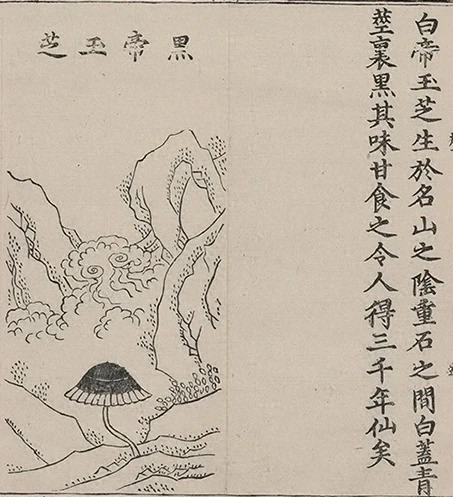 白帝玉芝生於名山之陰重石之間白蓋青
莖裏黑其味甘食之令人得三千年仙矣
黑帝玉芝